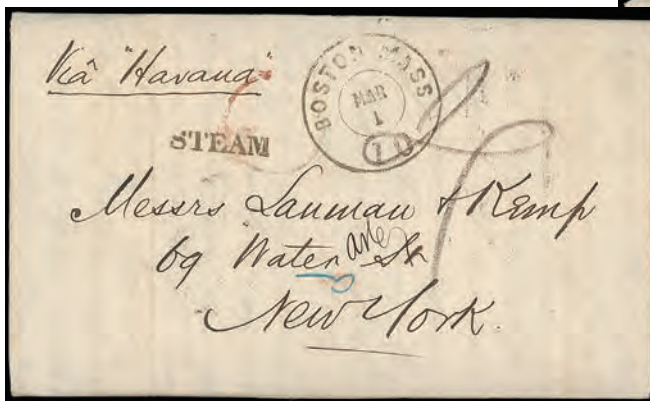 Viâ "Havana"
BOSTON MASS
MAR
1
10
STEAM
Messrs Lanman & Kemp
69 Water St
New York.